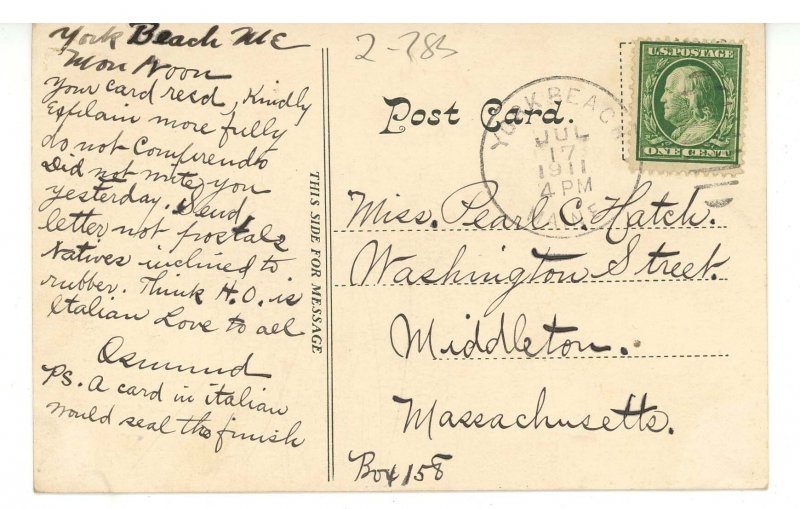 York Beach Me
Mon Noon
Your card recd, Kindly
Explain more fully
do not Comprendo
Did not write you
yesterday. Send
letter not postals
Natives inclined to
rubber. Think H.O. is
Italian Love to all
Osmund
PS. A card in italian
would seal the finish
THIS SIDE FOR MESSAGE
2-785
Post Card.
YORK BEACH
JUL
17
1911
4 PM
MAINE
U.S. POSTAGE
ONE CENT
Miss. Pearl C. Hatch.
Washington Street.
Middleton.
Massachusetts.
Box 158